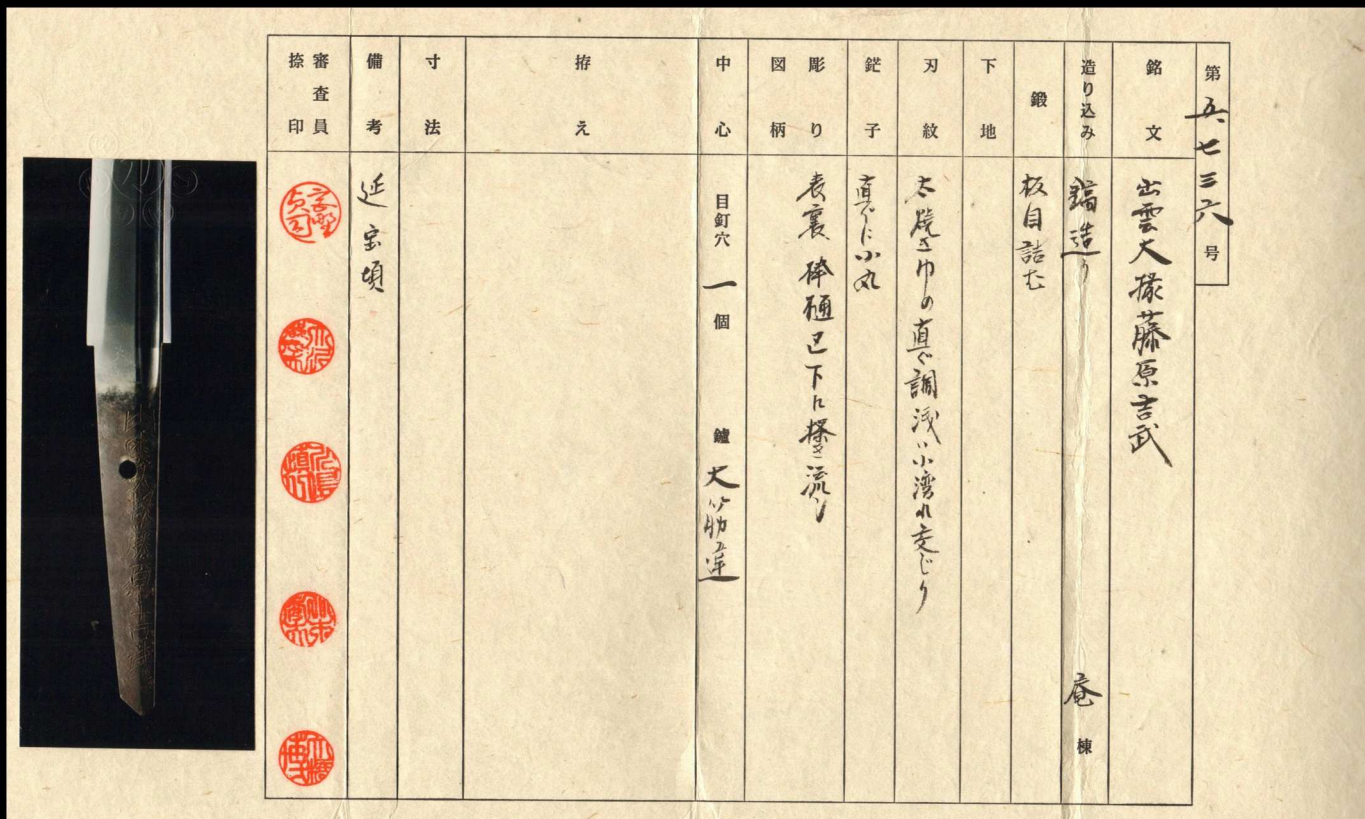 第五、七三六号
銘文 出雲大掾藤原吉武
造り込み 鎬造り 庵棟
鍛 板目詰む
下地
刃紋 太焼き巾の直ぐ調浅い小湾れ交じり
鋩子 直ぐに小丸
彫り図柄 表裏 棒樋 区下に掻き流し
中心 目釘穴 一個 鑢 大筋違
拵え
寸法
備考 延宝頃
審査員捺印